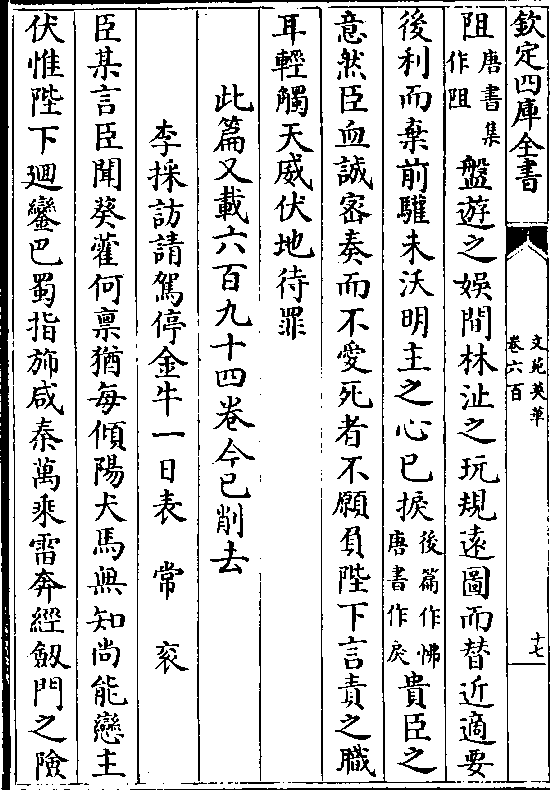 欽定四庫全書
文苑英華
卷六百
十七
阻唐書集作阻盤遊之娛間林沚之玩規遠圖而替近適要
後利而棄前驩未沃明主之心已捩後篇作怫唐書作戾貴臣之
意然臣血誠密奏而不愛死者不願負陛下言責之職
耳輕觸天威伏地待罪
此篇又載六百九十四卷今已削去
李採訪請駕停金牛一日表 常袞
臣某言臣聞葵藿何禀猶每傾陽犬馬無知尚能戀主
伏惟陛下廻鑾巴蜀指斾咸秦萬乘雷奔經劔門之險